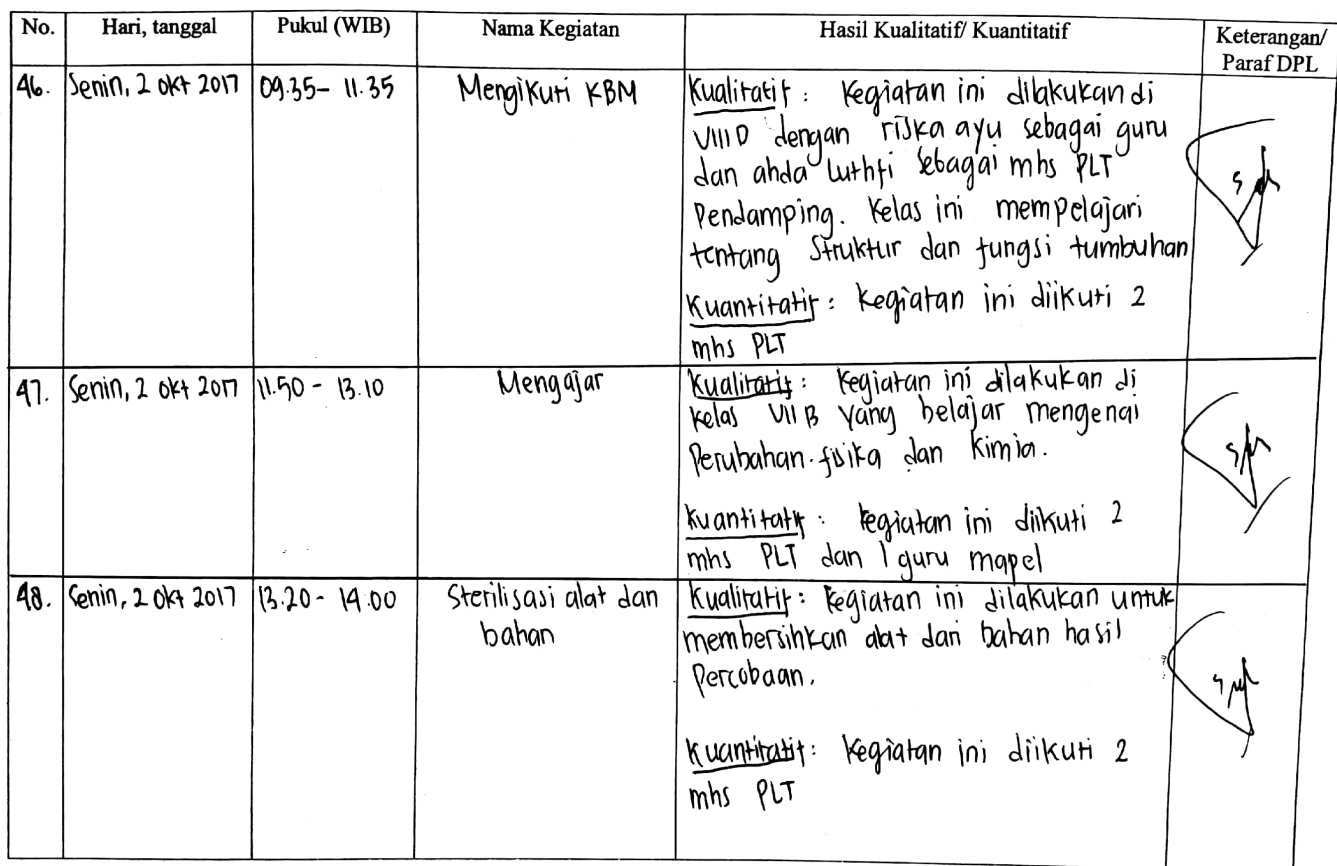 No. Hari, tanggal Pukul (WIB) Nama Kegiatan Hasil Kualitatif/ Kuantitatif Keterangan/
Paraf DPL
46. Senin, 2 okt 2017 09.35 - 11.35 Mengikuti KBM Kualitatif : Kegiatan ini dilakukan di
VIII D dengan riska ayu sebagai guru
dan ahda luthfi sebagai mhs PLT
Pendamping. Kelas ini mempelajari
tentang Struktur dan fungsi tumbuhan
Kuantitatif : Kegiatan ini diikuti 2
mhs PLT
47. Senin, 2 okt 2017 11.50 - 13.10 Mengajar Kualitatif : Kegiatan ini dilakukan di
kelas VII B yang belajar mengenai
Perubahan fisika dan kimia.
Kuantitatif : kegiatan ini diikuti 2
mhs PLT dan 1 guru mapel
48. Senin, 2 okt 2017 13.20 - 14.00 Sterilisasi alat dan Kualitatif : kegiatan ini dilakukan untuk
bahan membersihkan alat dari bahan hasil
Percobaan.
Kuantitatif : Kegiatan ini diikuti 2
mhs PLT